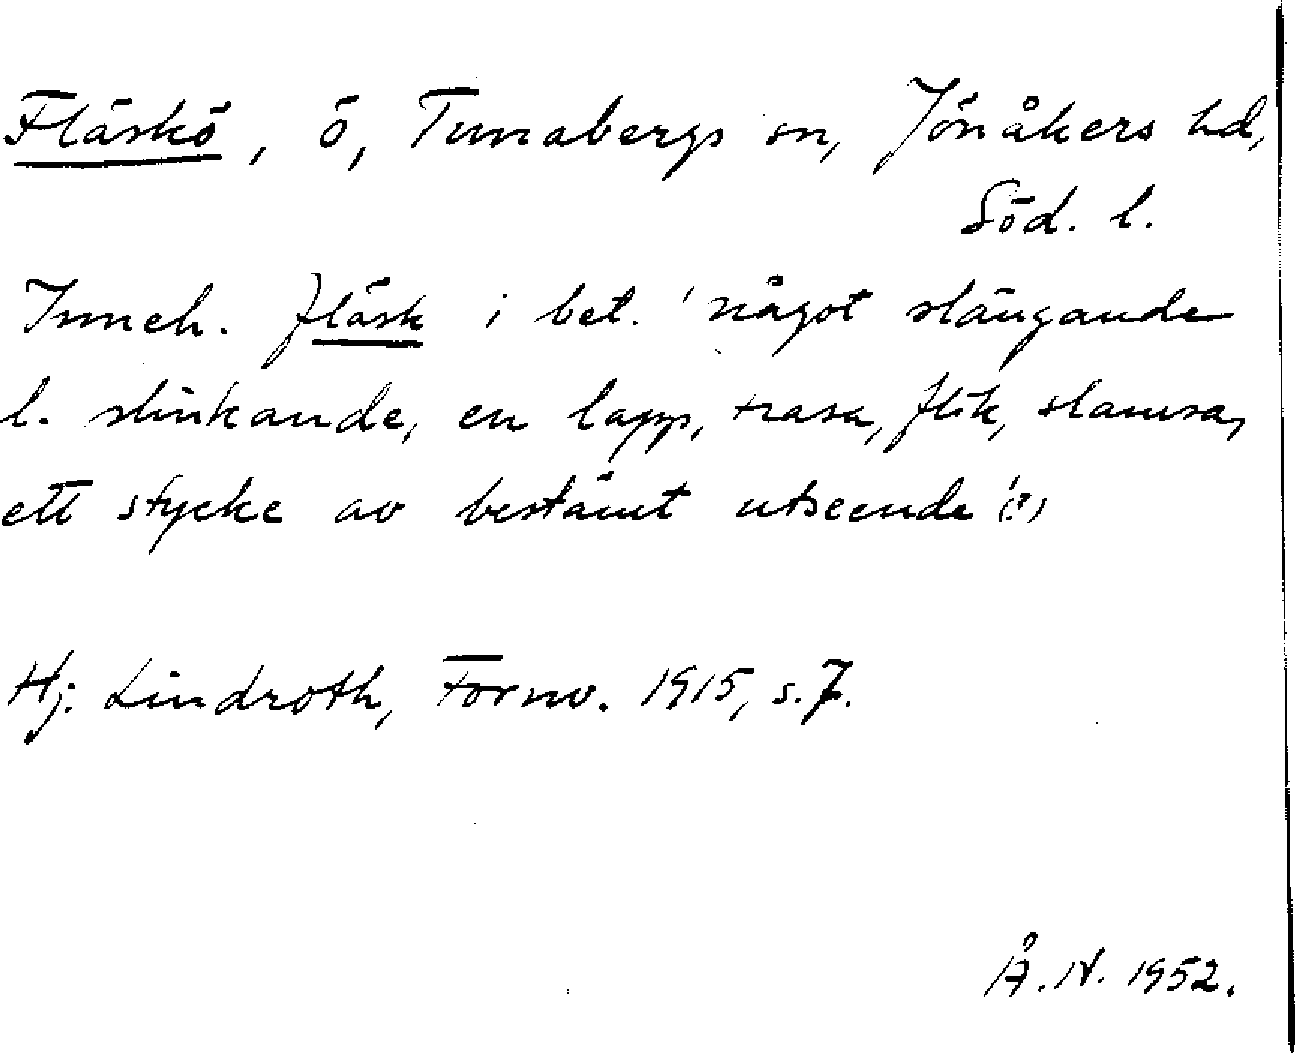 Fläskö, ö, Tunabergs sn, Jönåkers hd,
Söd. l.
Inneh. fläsk i bet. 'något slängande
l. slinkande, en lapp, trasa, flik, slamsa,
ett stycke av bestämt utseende'(?)
Hj. Lindroth, Fornv. 1915, s. 7.
Å. N. 1952.